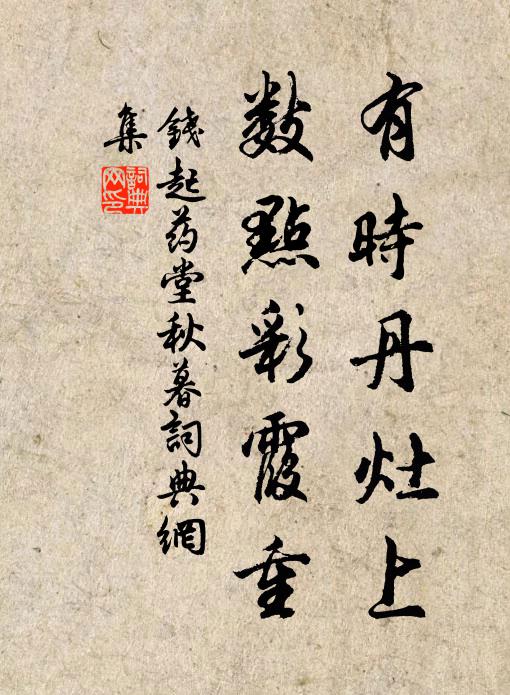 有時丹灶上
数點彩霞重
錢起药堂秋暮詞典網
集
詞典网印